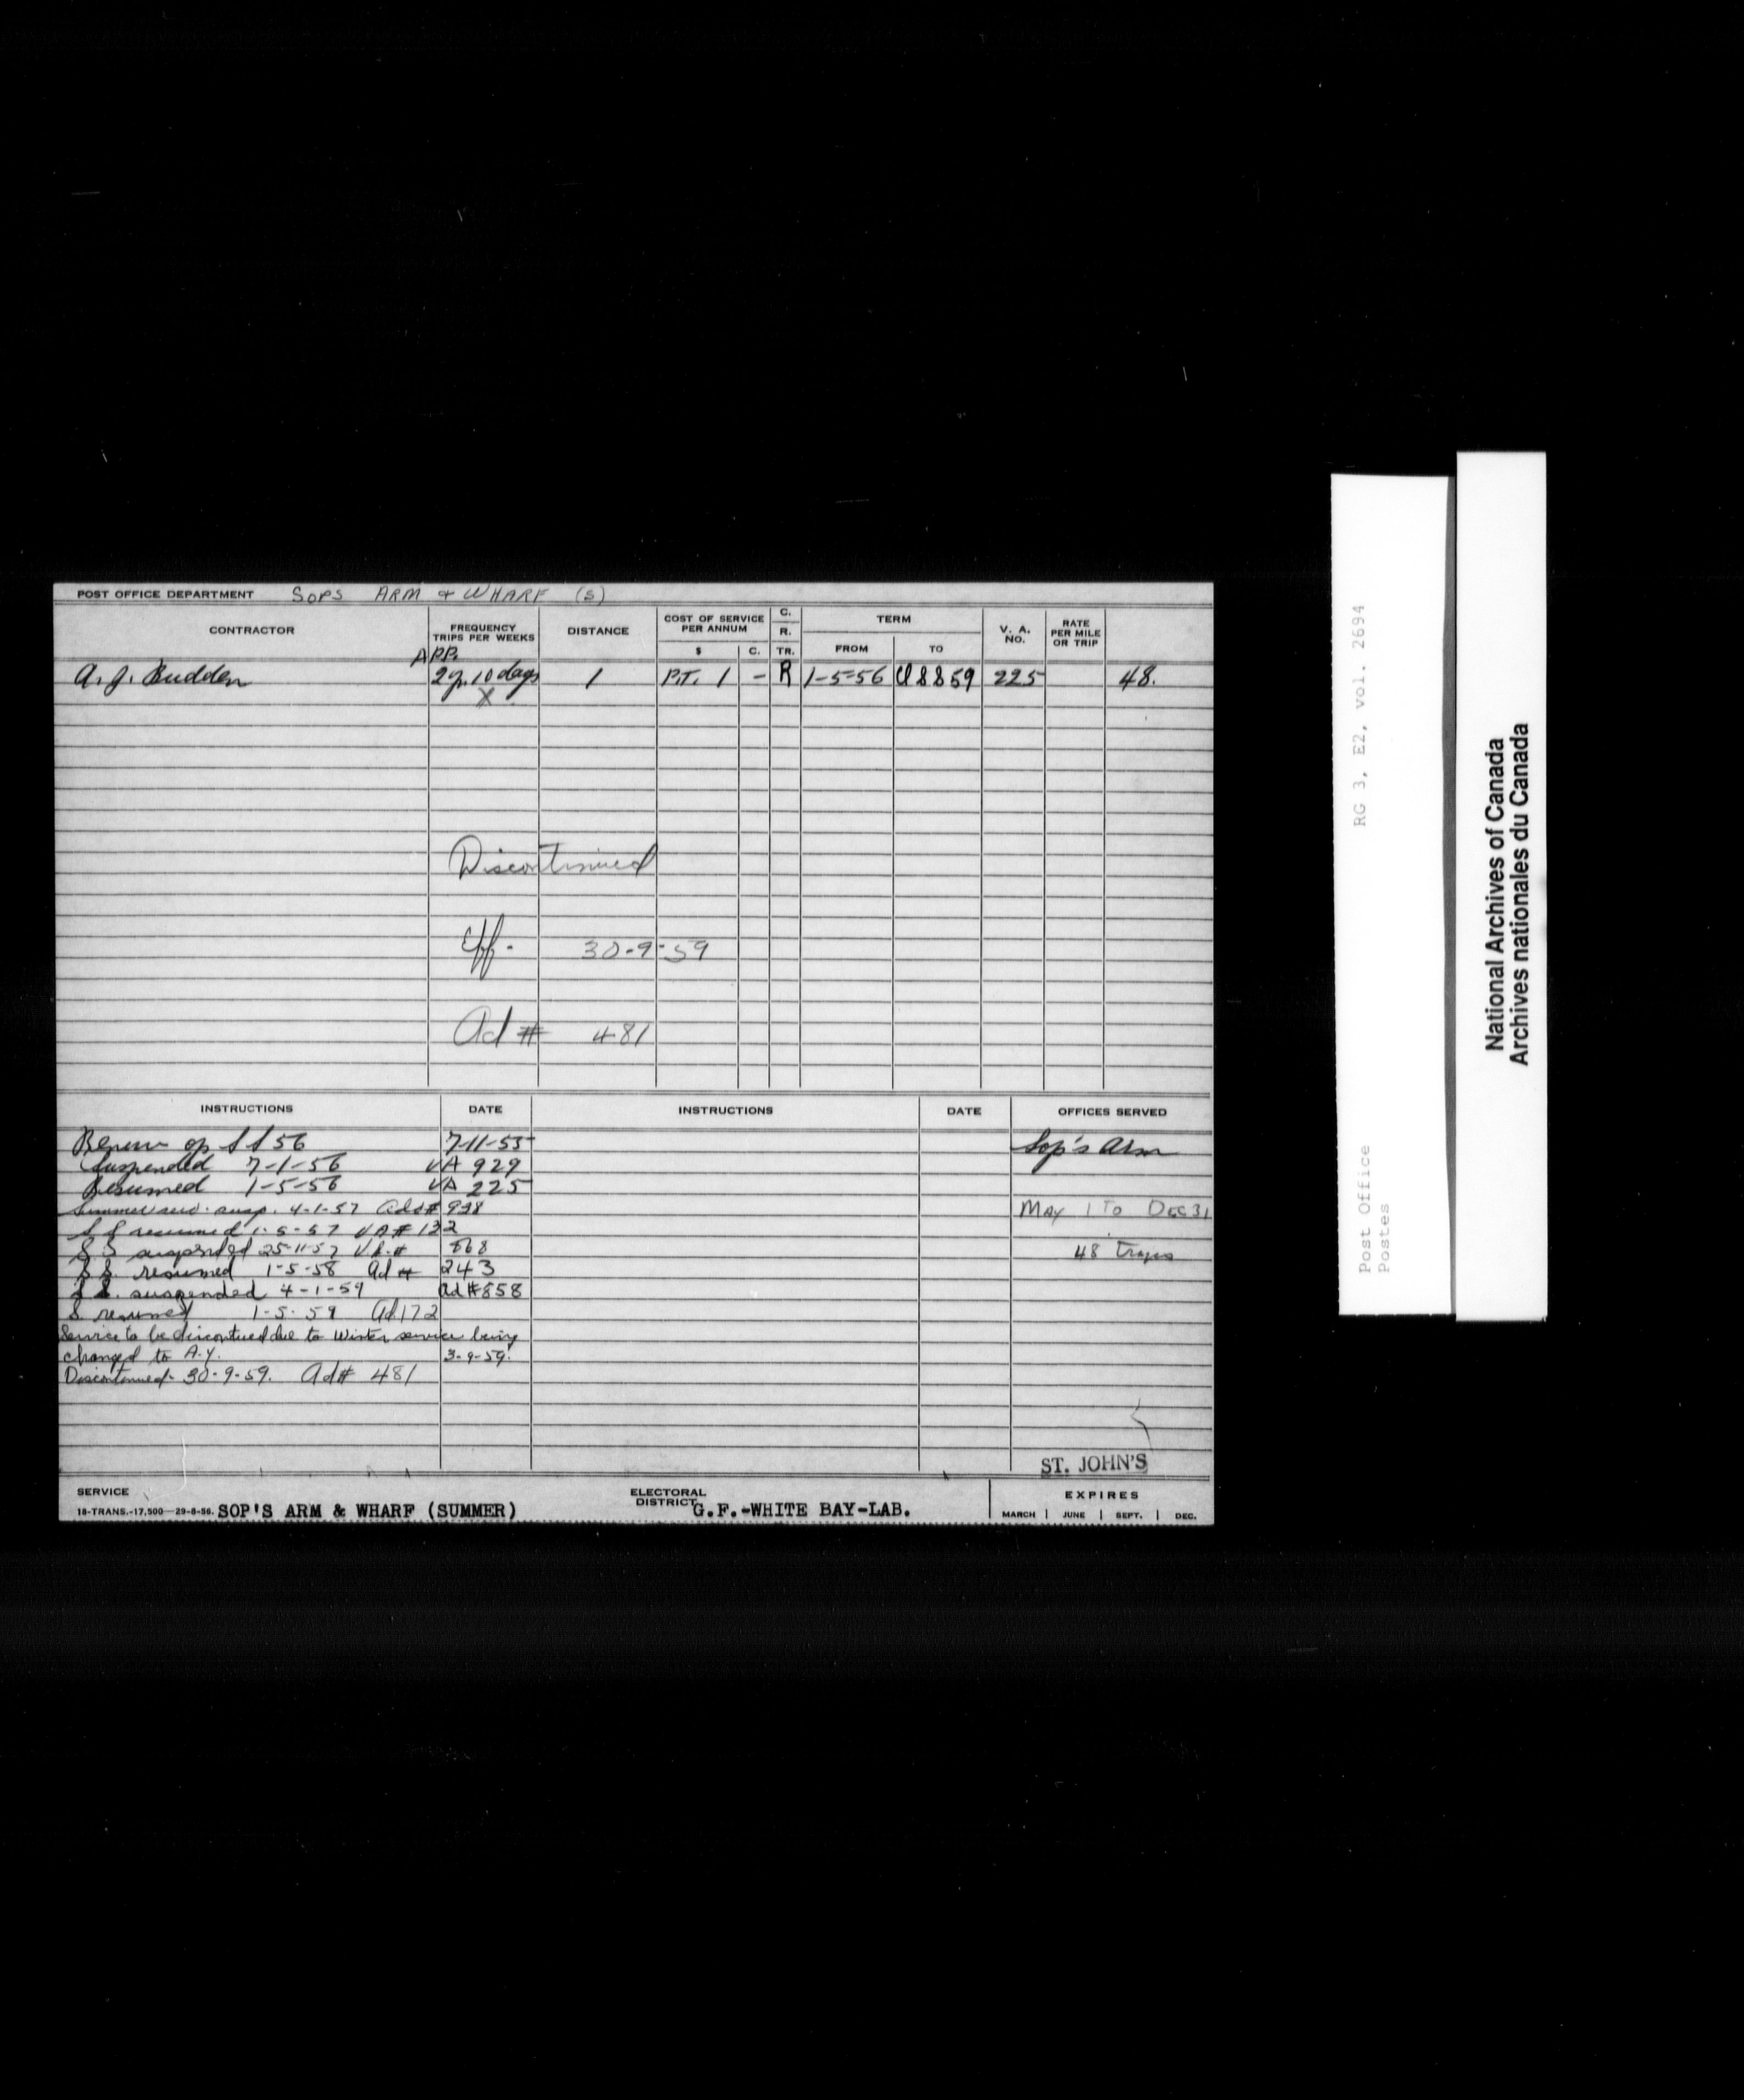 POST OFFICE DEPARTMENT SOPS ARM & WHARF (S)
CONTRACTOR FREQUENCY TRIPS PER WEEKS DISTANCE COST OF SERVICE PER ANNUM $ C. C. R. TR. TERM FROM TO V. A. NO. RATE PER MILE OR TRIP
APP.
A. J. Budden 2 p. 10 days 1 P.T. 1 - R 1-5-56 Cl 8859 225 48.
X
Discontinued
Eff. 30-9-59
Ad # 481
INSTRUCTIONS DATE INSTRUCTIONS DATE OFFICES SERVED
Renew op S S 56 7-11-55 Sop's Arm
Suspended 7-1-56 VA 929
Resumed 1-5-56 VA 225
Summer serv. susp. 4-1-57 Ad# 938 MAY 1 TO DEC 31
S S resumed 1-5-57 VA# 132
S.S suspended 25-11-57 VA.# 868 48 trips
S.S. resumed 1-5-58 Ad # 243
S S. suspended 4-1-59 Ad #858
S resumed 1-5-59 Ad 172
Service to be discontued due to Winter service being
changed to A.Y. 3-9-59.
Discontinued 30-9-59. Ad# 481
ST. JOHN'S
SERVICE
18-TRANS.-17,500—29-8-56. SOP'S ARM & WHARF (SUMMER) ELECTORAL DISTRICT G.F.-WHITE BAY-LAB. EXPIRES
MARCH | JUNE | SEPT. | DEC.
RG 3, E2, vol. 2694
Post Office
Postes
National Archives of Canada
Archives nationales du Canada